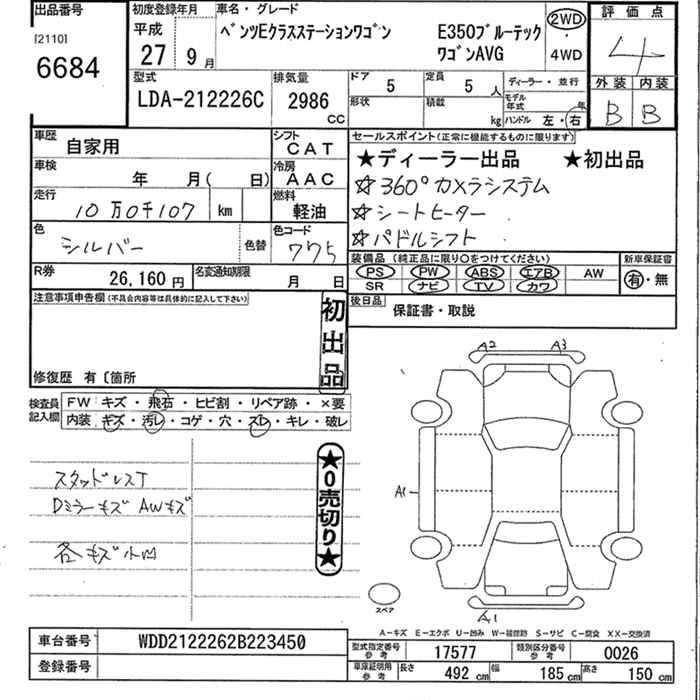 出品番号 初度登録年月 車名・グレード 評価点
[2110] 平成 ベンツEクラスステーションワゴン E350ブルーテック 2WD
6684 27年 9月 ワゴンAVG ・ 4WD 4
型式 排気量 ドア 5 定員 5人 ディーラー・並行 外装 内装
LDA-212226C 2986 CC 形状 積載 kg モデル年式 年 B B
ハンドル 左・右
車歴 自家用 シフト CAT セールスポイント(正常に機能するものに限ります)
車検 年 月( 日) 冷房 AAC ★ディーラー出品 ★初出品
☆360°カメラシステム
走行 10万0千107 km 燃料 軽油 ☆シートヒーター
色 シルバー 色替 色コード 775 ☆パドルシフト
装備品(純正品に限り○をつけてください) 新車保証書
R券 26,160円 名変通知期限 月 日 PS PW ABS エアB AW 有・無
SR ナビ TV カワ
注意事項申告欄(不具合内容等は具体的に記入して下さい) 初出品 後日品 保証書・取説
修復歴 有〔箇所
検査員記入欄 FW:キズ・飛石・ヒビ割・リペア跡・×要
内装:キズ・汚レ・コゲ・穴・スレ・キレ・破レ
A2 A3
スタッドレスT
Dミラーキズ AWキズ
★0売切り★
A1
各キズ小凹
スペア
A1
A-キズ E-エクボ U-凹み W-補修跡 S-サビ C-腐食 XX-交換済
車台番号 WDD2122262B223450 型式指定番号参考 17577 類別区分番号参考 0026
登録番号 車庫証明用参考 長さ 492cm 幅 185cm 高さ 150cm